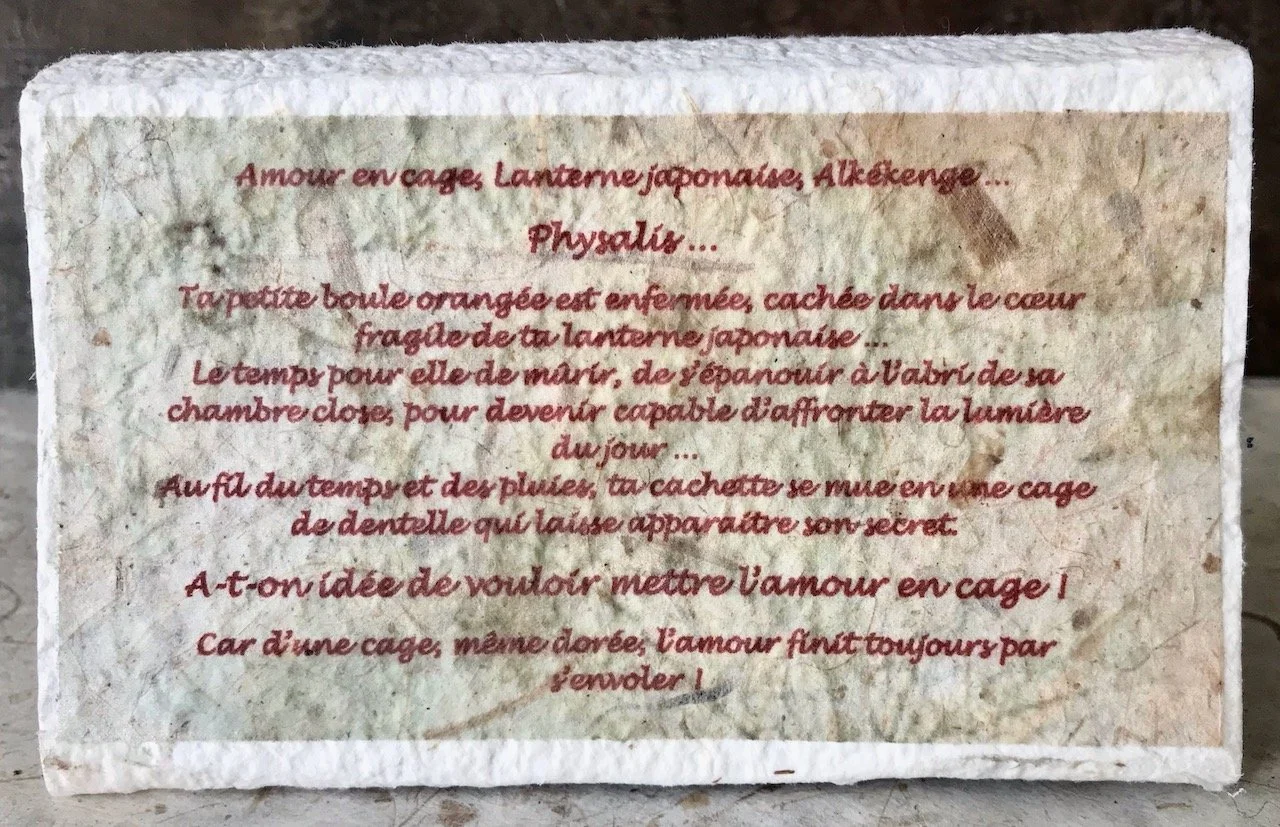 Amour en cage, Lanterne japonaise, Alkékenge ...
Physalis ...
Ta petite boule orangée est enfermée, cachée dans le cœur
fragile de ta lanterne japonaise ...
Le temps pour elle de mûrir, de s'épanouir à l'abri de sa
chambre close, pour devenir capable d'affronter la lumière
du jour ...
Au fil du temps et des pluies, ta cachette se mue en une cage
de dentelle qui laisse apparaitre son secret.
A-t-on idée de vouloir mettre l'amour en cage !
Car d'une cage, même dorée, l'amour finit toujours par
s'envoler !